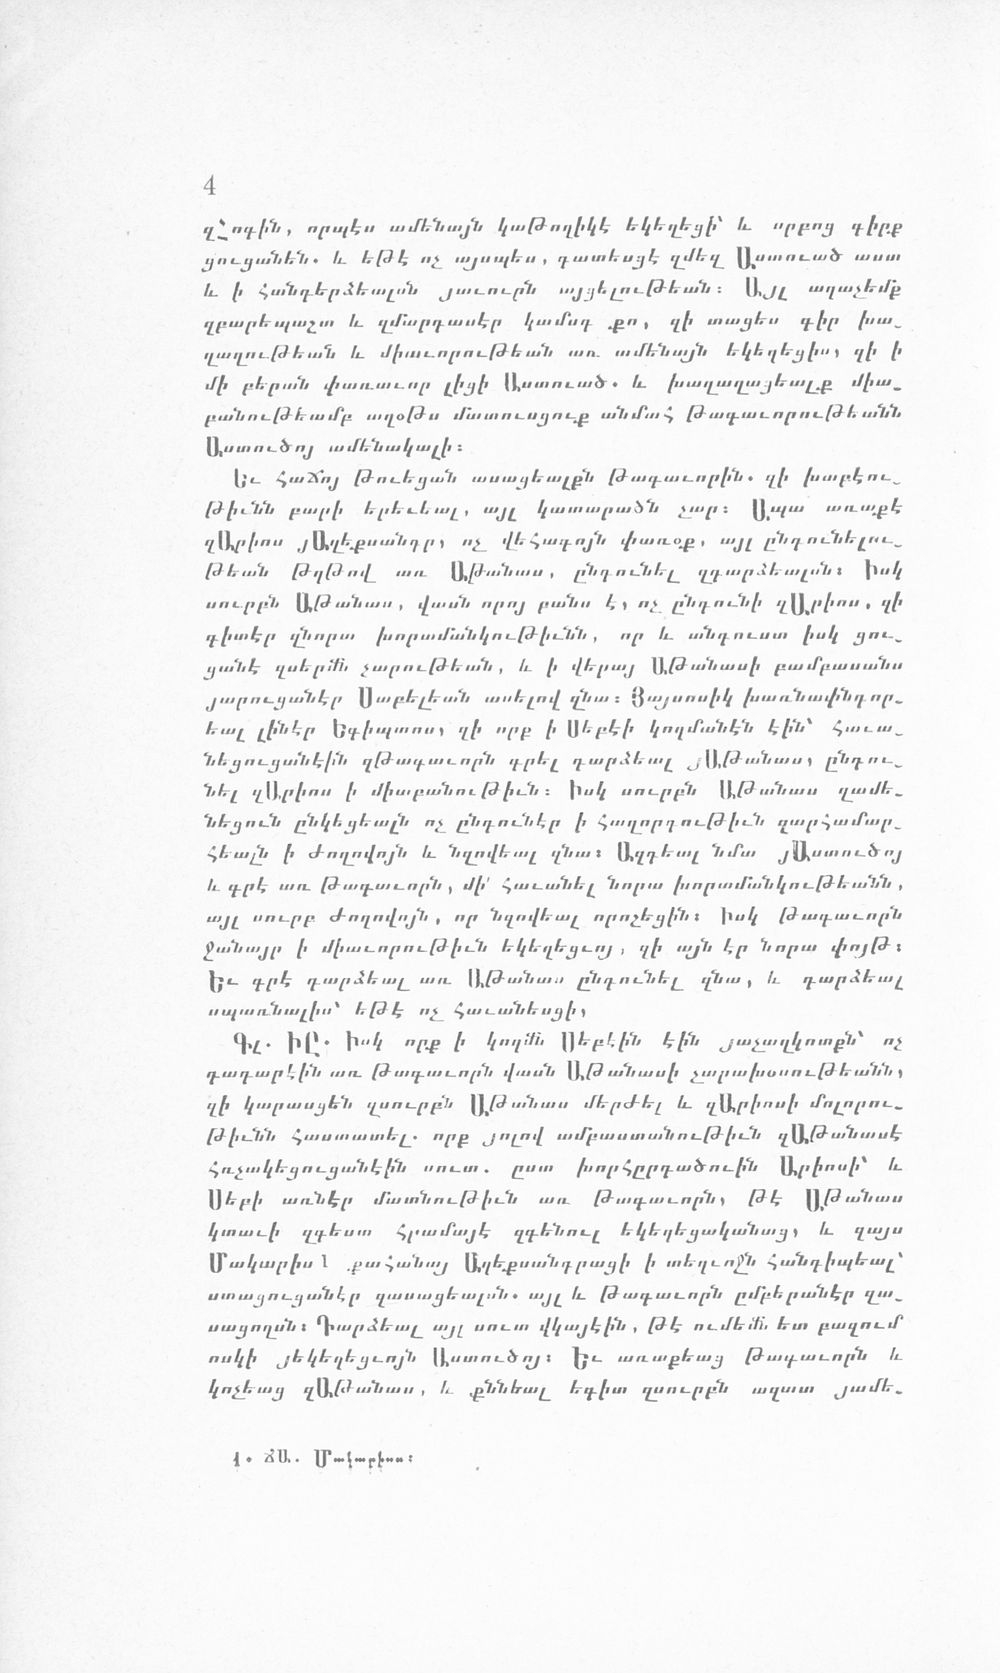 4
զՀոգին, որպէս ամենայն կաթողիկէ եկեղեցի՝ և սրբոց գիրք
ցուցանեն. և եթէ ոչ այսպէս, դատեսցէ զմեզ Աստուած աստ
և ի հանդերձեալսն յաւուրն այցելութեան: Այլ աղաչեմք
զբարեպաշտ և զմարդասէր կամսդ քո, զի տացես գիր խա-
ղաղութեան և միաւորութեան առ ամենայն եկեղեցիս, զի ի
մի բերան փառաւոր լիցի Աստուած. և խաղաղացեալք միա-
բանութեամբ աղօթս մատուսցուք անմահ թագաւորութեանն
Աստուծոյ ամենակալի:
Եւ հաճոյ թուեցան ասացեալքն թագաւորին. զի խաբէու-
թիւնն բարի երեւեալ, այլ կատարածն չար: Ապա առաքէ
զԱրիոս յԱղեքսանդր, ոչ վեհագոյն փառօք, այլ ընդունելու-
թեան թղթով առ Աթանաս, ընդունել զդարձեալսն: Իսկ
սուրբն Աթանաս, վասն որոյ բանս է, ոչ ընդունի զԱրիոս, զի
գիտէր զնորա խորամանկութիւնն, որ և անդուստ իսկ ցու-
ցանէ զսերմն չարութեան, և ի վերայ Աթանասի բամբասանս
յարուցանէր Սաբելեան ասելով զնա: Յայսոսիկ խառնափնդոր-
եալ լինէր Եգիպտոս, զի որք ի Սեբէի կողմանէն էին՝ հաւա-
նեցուցանէին զթագաւորն գրել դարձեալ յԱթանաս, ընդու-
նել զԱրիոս ի միաբանութիւն: Իսկ սուրբն Աթանաս զամե-
նեցուն ընկեցեալն ոչ ընդունէր ի հաղորդութիւն զարհամար-
հեալն ի ժողովոյն և նզովեալ զնա: Ազդեալ նմա յԱստուծոյ
և գրէ առ թագաւորն, մի՛ հաւանել նորա խորամանկութեանն,
այլ սուրբ ժողովոյն, որ նզովեալ որոշեցին: Իսկ թագաւորն
ջանայր ի միաւորութիւն եկեղեցւոյ, զի այն էր նորա փոյթ:
Եւ գրէ դարձեալ առ Աթանաս ընդունել զնա, և դարձեալ
սպառնալիս՝ եթէ ոչ հաւանեսցի,
Գլ. ԻԸ. Իսկ որք ի կողմն Սեբէին էին յաչաղկոտքն՝ ոչ
դադարէին առ թագաւորն վասն Աթանասի չարախօսութեանն,
զի կարասցեն զսուրբն Աթանաս մերժել և զԱրիոսի մոլորու-
թիւնն հաստատել. որք յոլով ամբաստանութիւն զԱթանասէ
հռչակեցուցանէին սուտ. ըստ խորհըրդածուին Արիոսի՝ և
Սեբի առնէր մատնութիւն առ թագաւորն, թէ Աթանաս
կտաւի զգեստ հրամայէ զգենուլ եկեղեցականաց, և զայս
Մակարիս 1 քահանայ Աղեքսանդրացի ի տեղւոջն հանդիպեալ՝
ստացուցանէր զասացեալսն. այլ և թագաւորն ըմբերանէր զա-
սացողսն: Դարձեալ այլ սուտ վկայէին, թէ ումեմն ետ բազում
ոսկի յեկեղեցւոյն Աստուծոյ: Եւ առաքեաց թագաւորն և
կոչեաց զԱթանաս, և քննեալ եգիտ զսուրբն ազատ յամե-
1. ՃԱ. Մակարիոս: